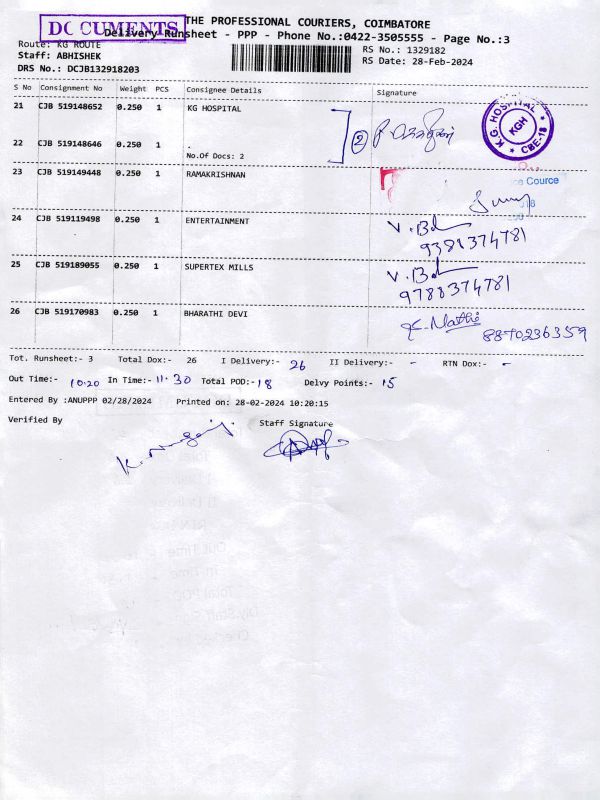 DOCUMENTS
THE PROFESSIONAL COURIERS, COIMBATORE
Delivery Runsheet - PPP - Phone No.:0422-3505555 - Page No.:3
Route: KG ROUTE
RS No.: 1329182
Staff: ABHISHEK
RS Date: 28-Feb-2024
DRS No.: DCJB132918203
S No Consignment No Weight PCS Consignee Details Signature
21 CJB 519148652 0.250 1 KG HOSPITAL
K.G HOSPITAL KGH CBE-18
2
22 CJB 519148646 0.250 1 .
No.Of Docs: 2
23 CJB 519149448 0.250 1 RAMAKRISHNAN
ce Cource
18
24 CJB 519119498 0.250 1 ENTERTAINMENT
9388374781
25 CJB 519189055 0.250 1 SUPERTEX MILLS
9788374781
26 CJB 519170983 0.250 1 BHARATHI DEVI
Mathi
8870236359
Tot. Runsheet:- 3 Total Dox:- 26 I Delivery:- 26 II Delivery:- - RTN Dox:- -
Out Time:- 10.20 In Time:- 11.30 Total POD:- 18 Delvy Points:- 15
Entered By :ANUPPP 02/28/2024 Printed on: 28-02-2024 10:20:15
Verified By Staff Signature